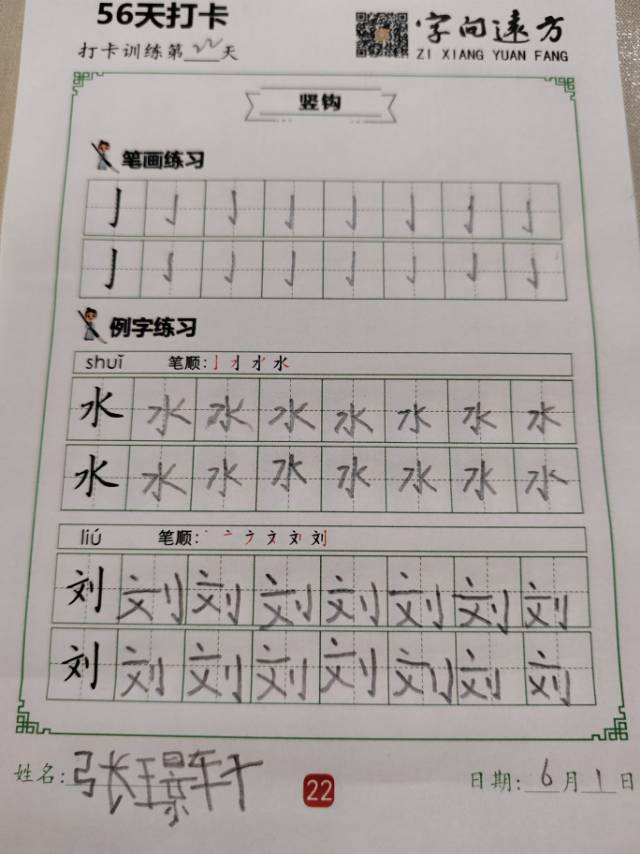 56天打卡
字向远方
打卡训练第22天
ZI XIANG YUAN FANG
竖钩
笔画练习
亅亅亅亅亅亅亅亅
亅亅亅亅亅亅亅亅
例字练习
shuǐ 笔顺:
水水水水水水水水
水水水水水水水水
liú 笔顺:
刘刘刘刘刘刘刘刘
刘刘刘刘刘刘刘刘
姓名:张璟轩
22
日期:6月1日